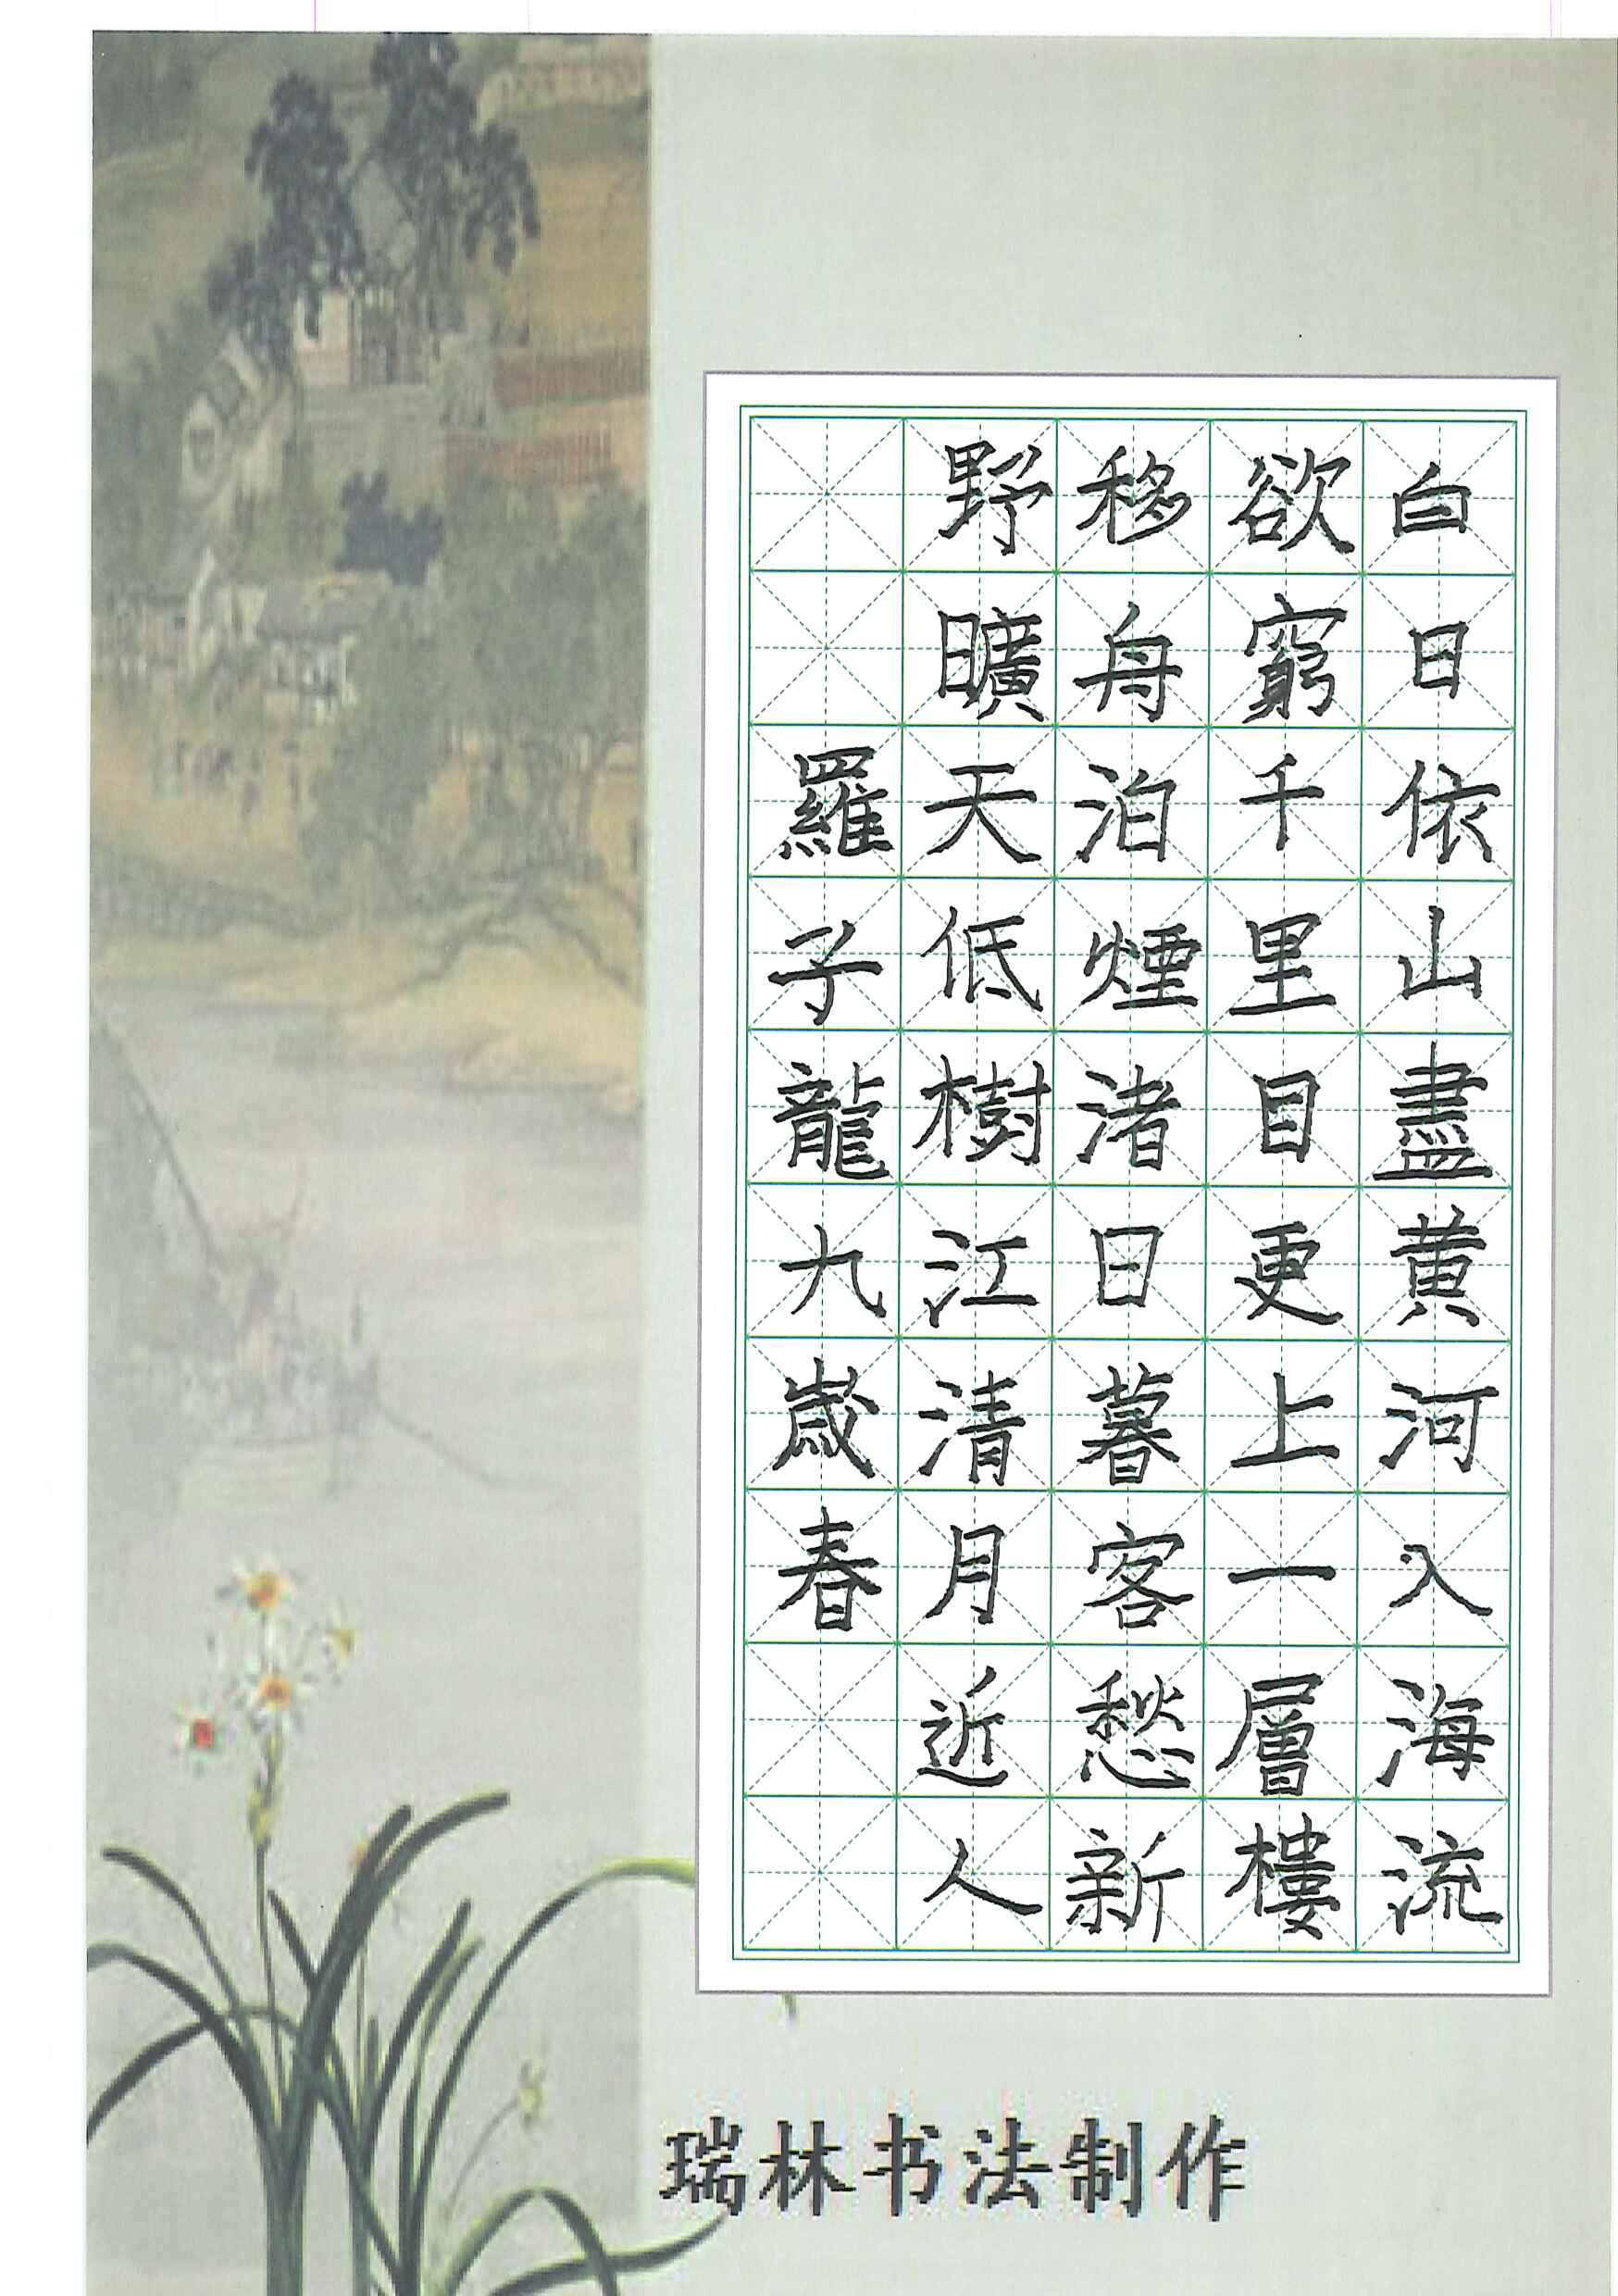 白日依山盡黄河入海流
欲窮千里目更上一層樓
移舟泊煙渚日暮客愁新
野曠天低樹江清月近人
羅子龍九歲春
瑞林书法制作